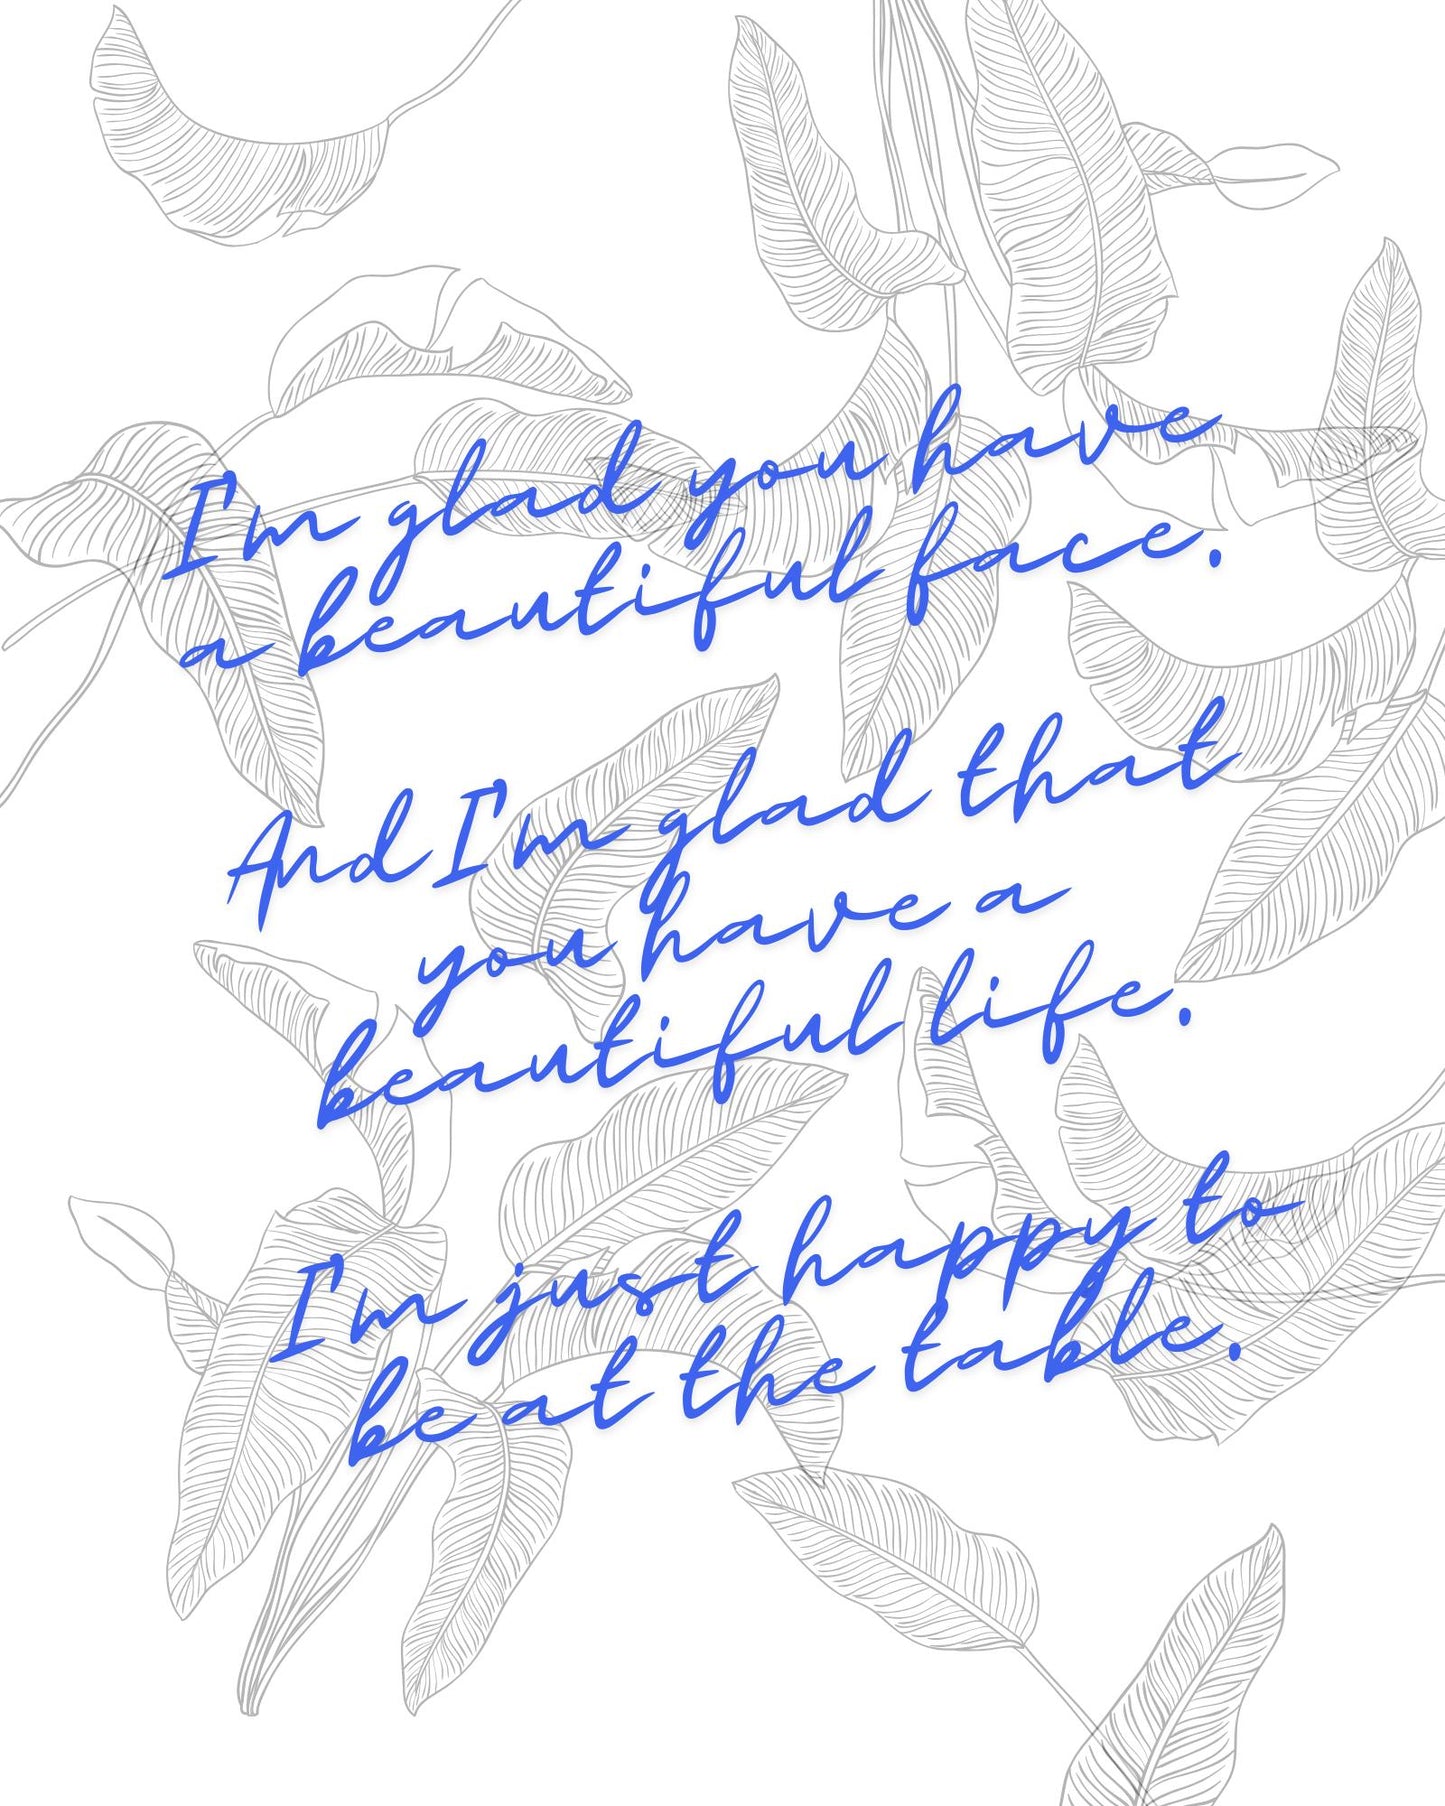 I'm glad you have
a beautiful face.
And I'm glad that
you have a
beautiful life.
I'm just happy to
be at the table.